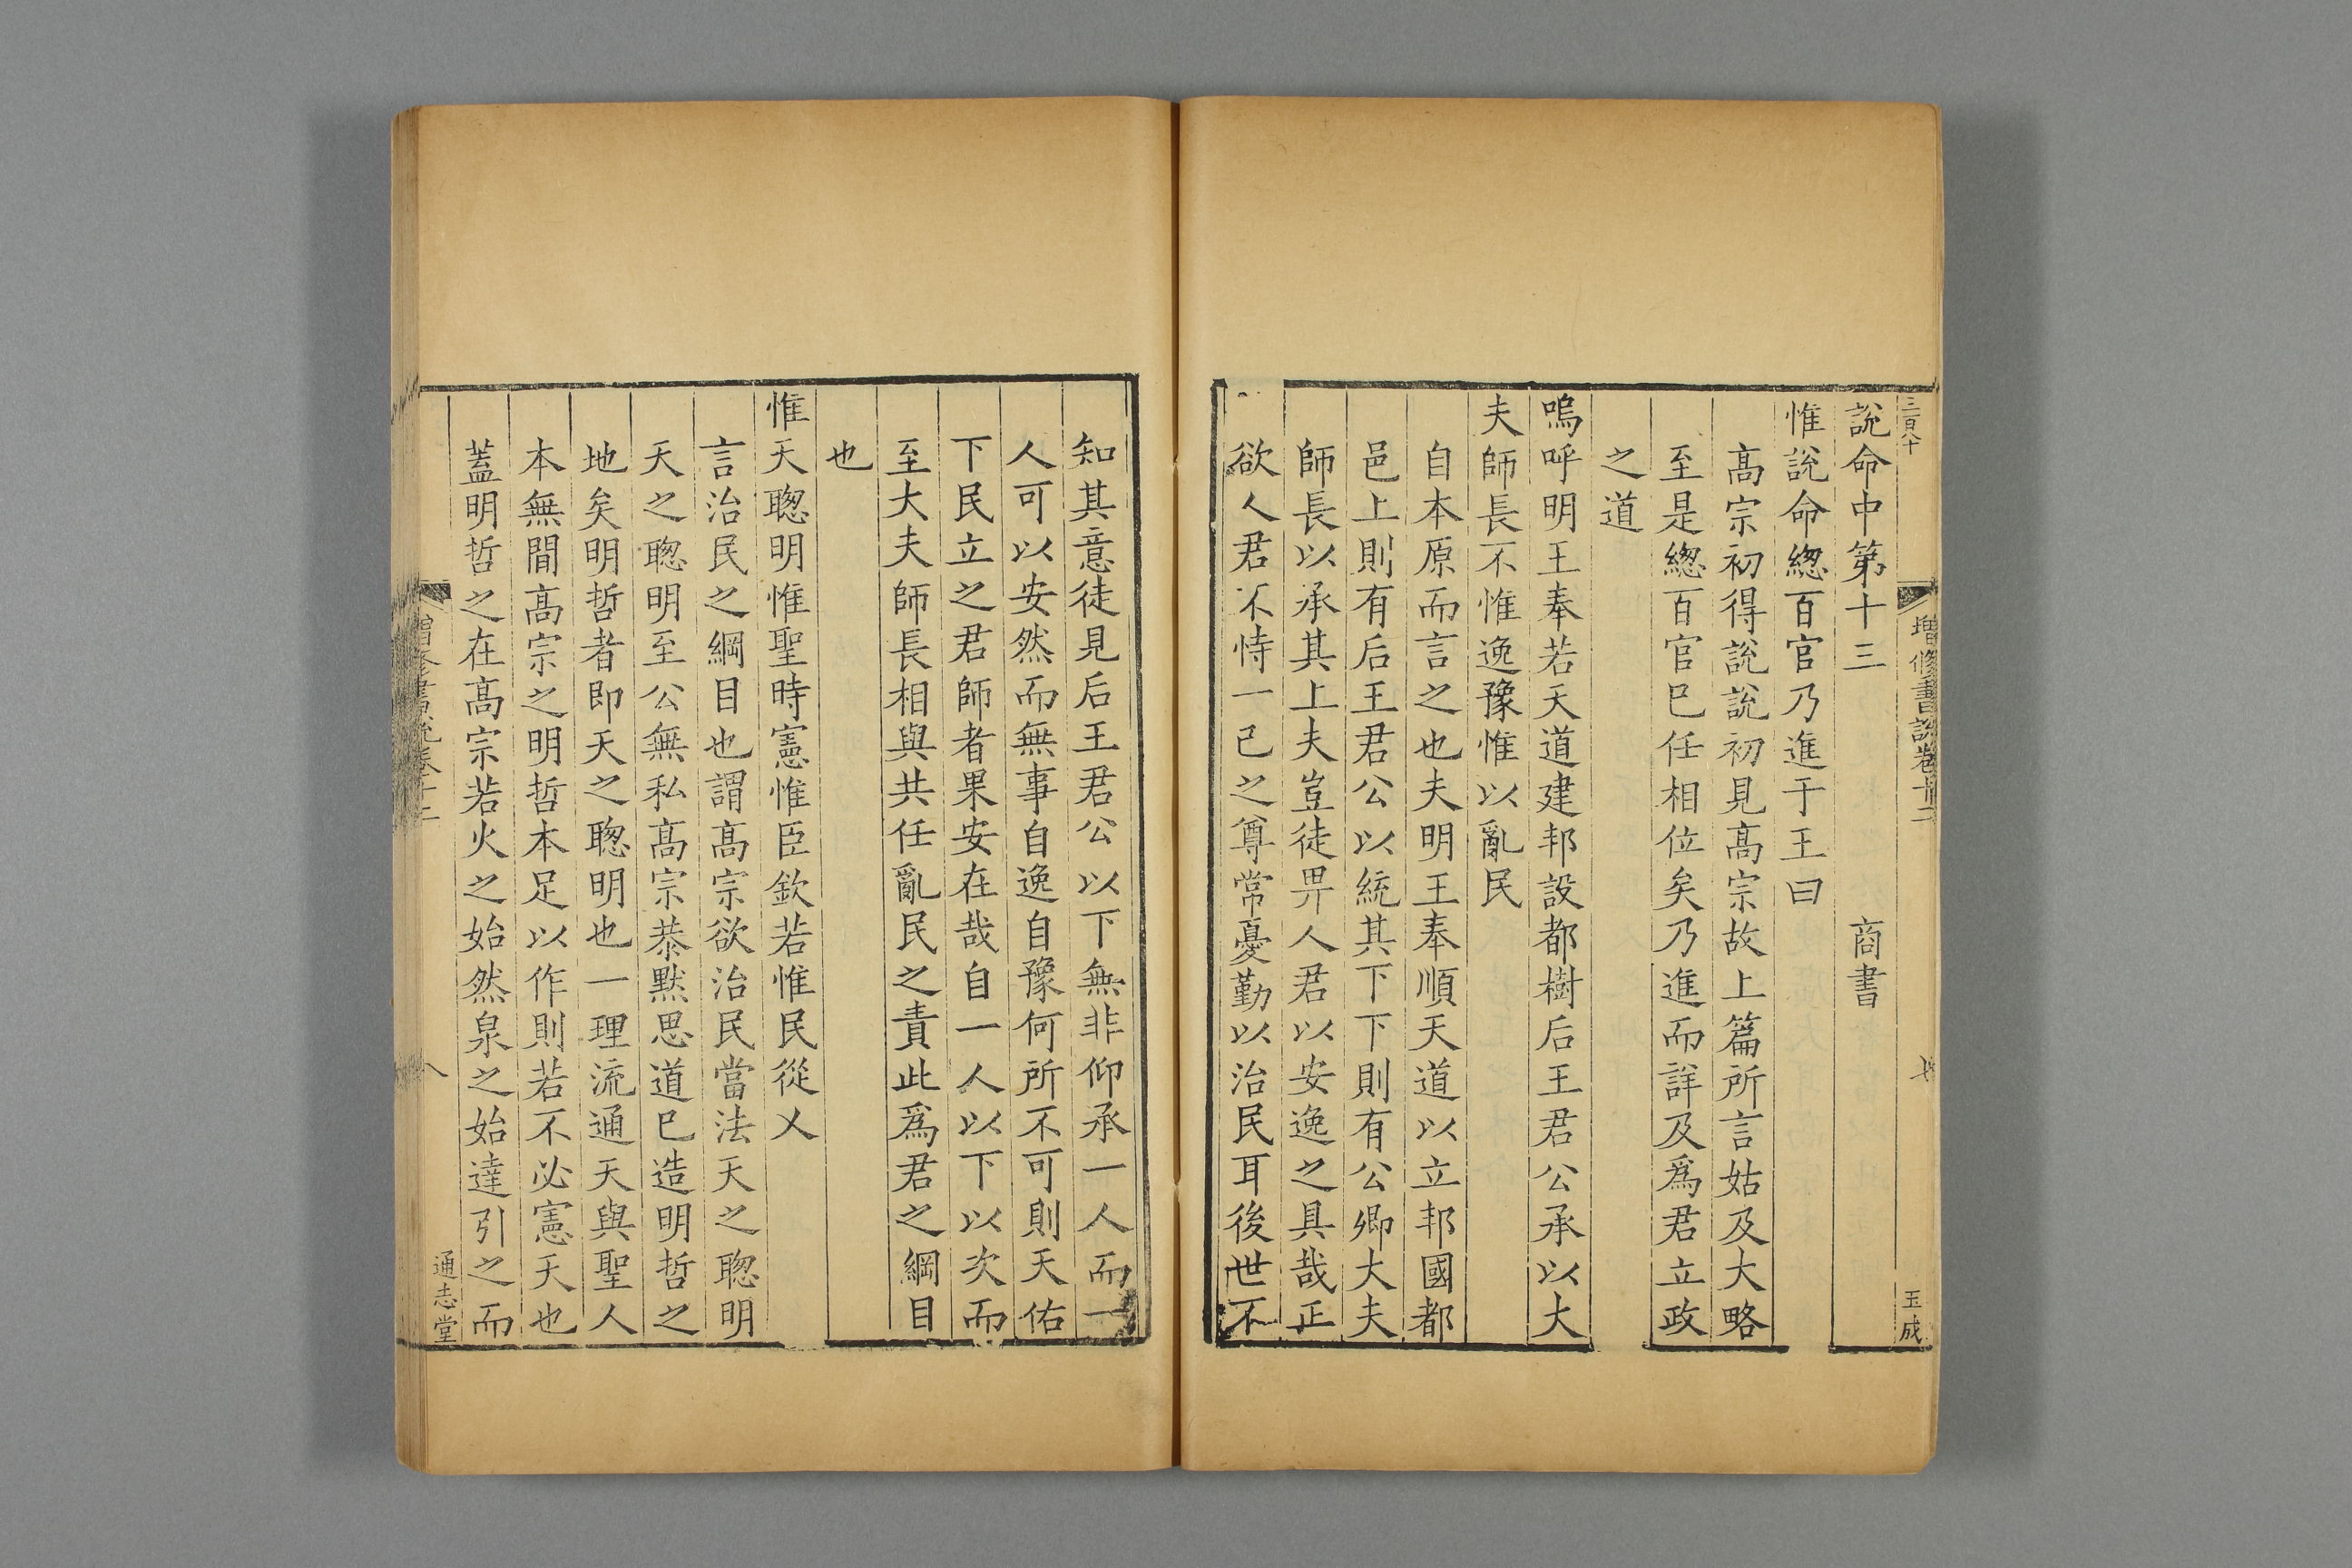 三百八十
增修書說卷十二
七
玉成
說命中第十三 商書
惟說命緫百官乃進于王曰
髙宗初得說說初見髙宗故上篇所言姑及大略
至是緫百官巳任相位矣乃進而詳及爲君立政
之道
嗚呼明王奉若天道建邦設都樹后王君公承以大
夫師長不惟逸豫惟以亂民
自本原而言之也夫明王奉順天道以立邦國都
邑上則有后王君公以統其下下則有公卿大夫
師長以承其上夫豈徒畀人君以安逸之具哉正
欲人君不恃一己之尊常憂勤以治民耳後世不
知其意徒見后王君公以下無非仰承一人而一
人可以安然而無事自逸自豫何所不可則天佑
下民立之君師者果安在哉自一人以下以次而
至大夫師長相與共任亂民之責此爲君之綱目
也
惟天聦明惟聖時憲惟臣欽若惟民從乂
言治民之綱目也謂髙宗欲治民當法天之聦明
天之聦明至公無私髙宗恭默思道巳造明哲之
地矣明哲者即天之聦明也一理流通天與聖人
本無間髙宗之明哲本足以作則若不必憲天也
蓋明哲之在髙宗若火之始然泉之始達引之而
增修書說卷十二
八
通志堂